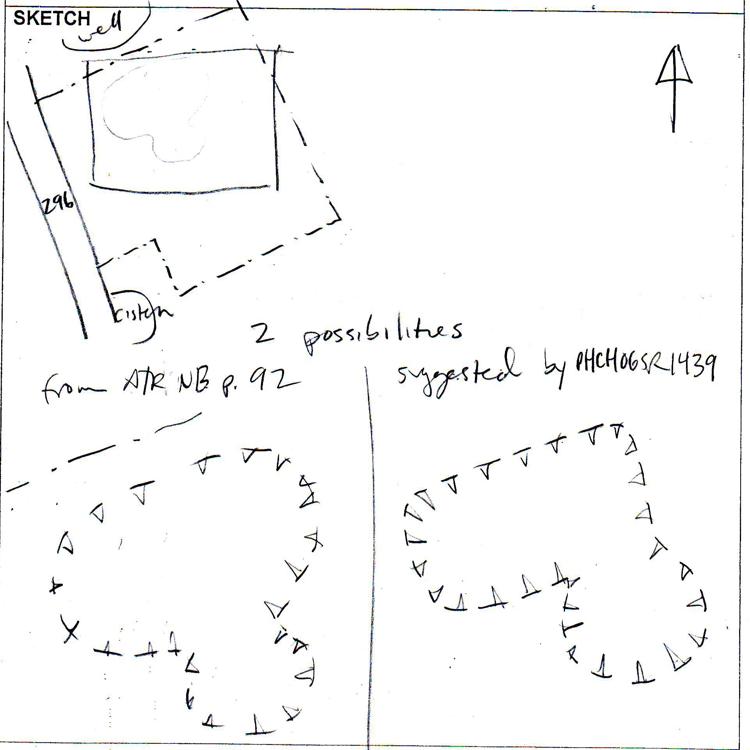 SKETCH
well
296
cistern
2 possibilities
from ATR NB p. 92
suggested by PHCH06SR1439